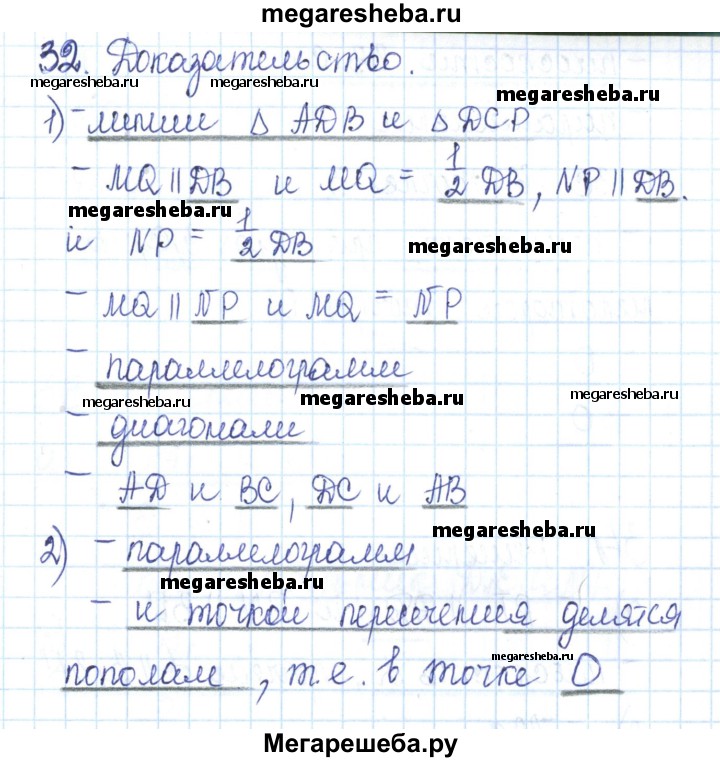 megaresheba.ru
32. Доказательство.
megaresheba.ru megaresheba.ru megaresheba.ru
1) - линии Δ ADB и Δ DCP
- MQ || DB и MQ = 1/2 DB, NP || DB.
megaresheba.ru
и NP = 1/2 DB
megaresheba.ru
- MQ || NP и MQ = NP
- параллелограмм
megaresheba.ru megaresheba.ru megaresheba.ru
- диагонали
- AD и BC, DC и AB
megaresheba.ru
2) - параллелограмм
megaresheba.ru
- и точкой пересечения делятся
пополам, т.е. в точке O
megaresheba.ru
Мегарешеба.ру